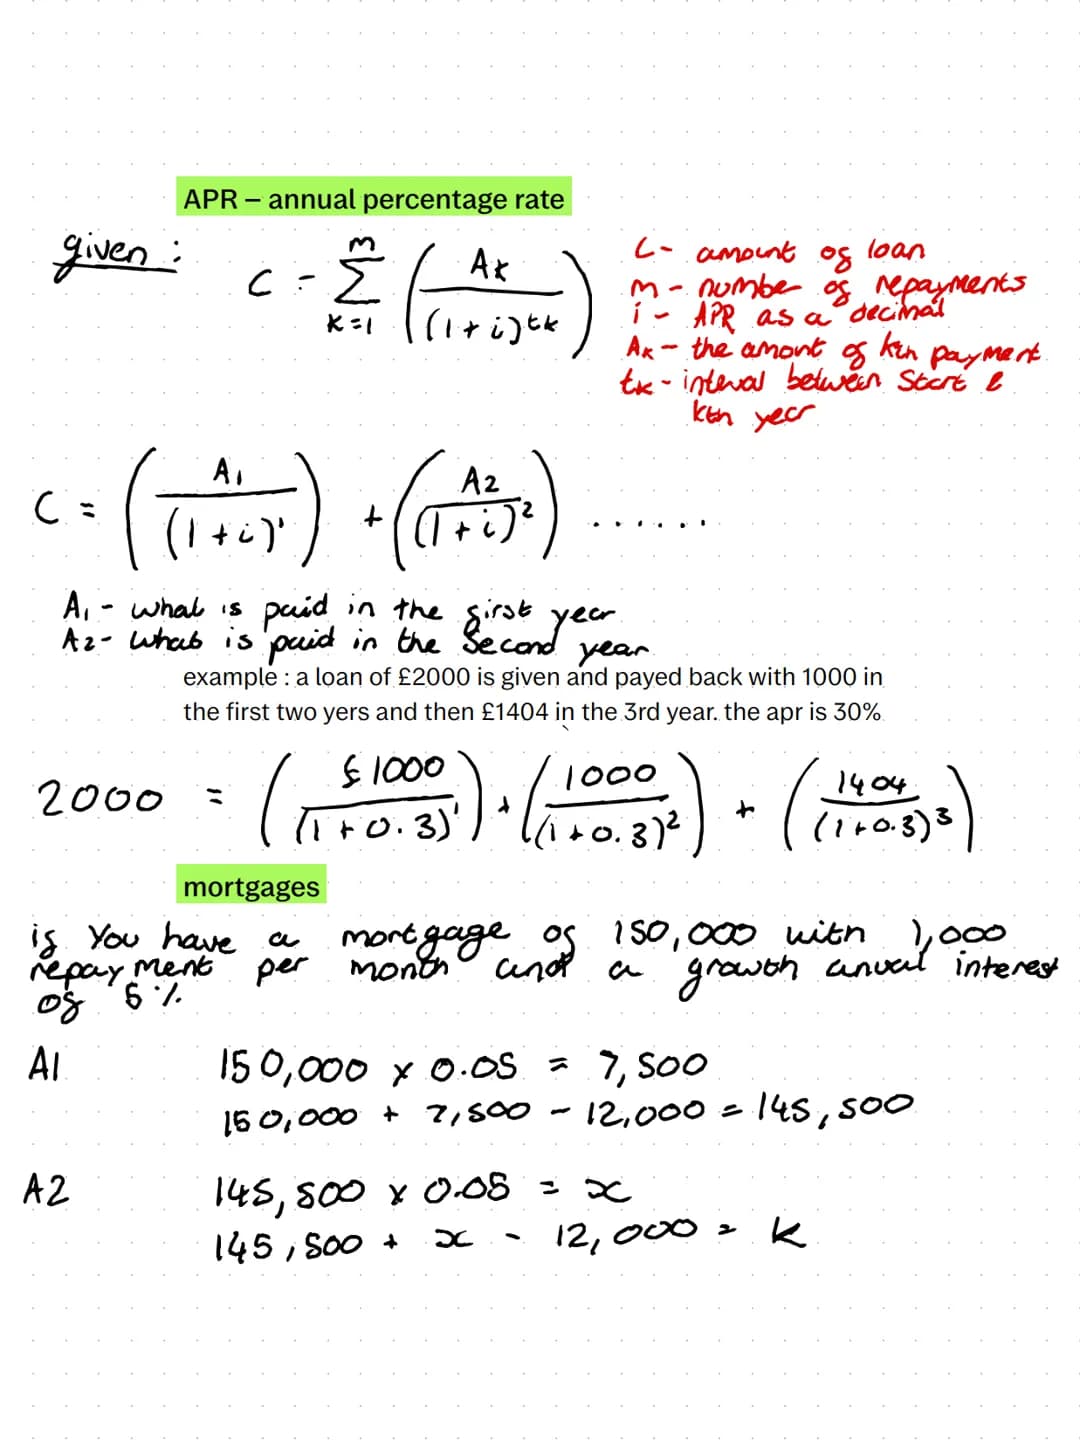 APR – annual percentage rate
given : C = m Σ k=1 ( Ak / (1 + i)^tk )
C - amount of loan
m - number of repayments
i - APR as a decimal
Ak - the amont of kth payment
tk - inteval between Start &
kth year
C = ( A1 / (1 + i)^1 ) + ( A2 / (1 + i)^2 ) .......
A1 - what is paid in the first year
A2 - what is paid in the Second year
example : a loan of £2000 is given and payed back with 1000 in
the first two yers and then £1404 in the 3rd year. the apr is 30%
2000 = ( £1000 / (1 + 0.3)^1 ) + ( 1000 / (1 + 0.3)^2 ) + ( 1404 / (1 + 0.3)^3 )
mortgages
if You have a mortgage of 150,000 with 1,000
repayment per month and a growth anual interest
of 5%
A1 150,000 x 0.05 = 7,500
150,000 + 7,500 - 12,000 = 145,500
A2 145,500 x 0.05 = x
145,500 + x - 12,000 = k